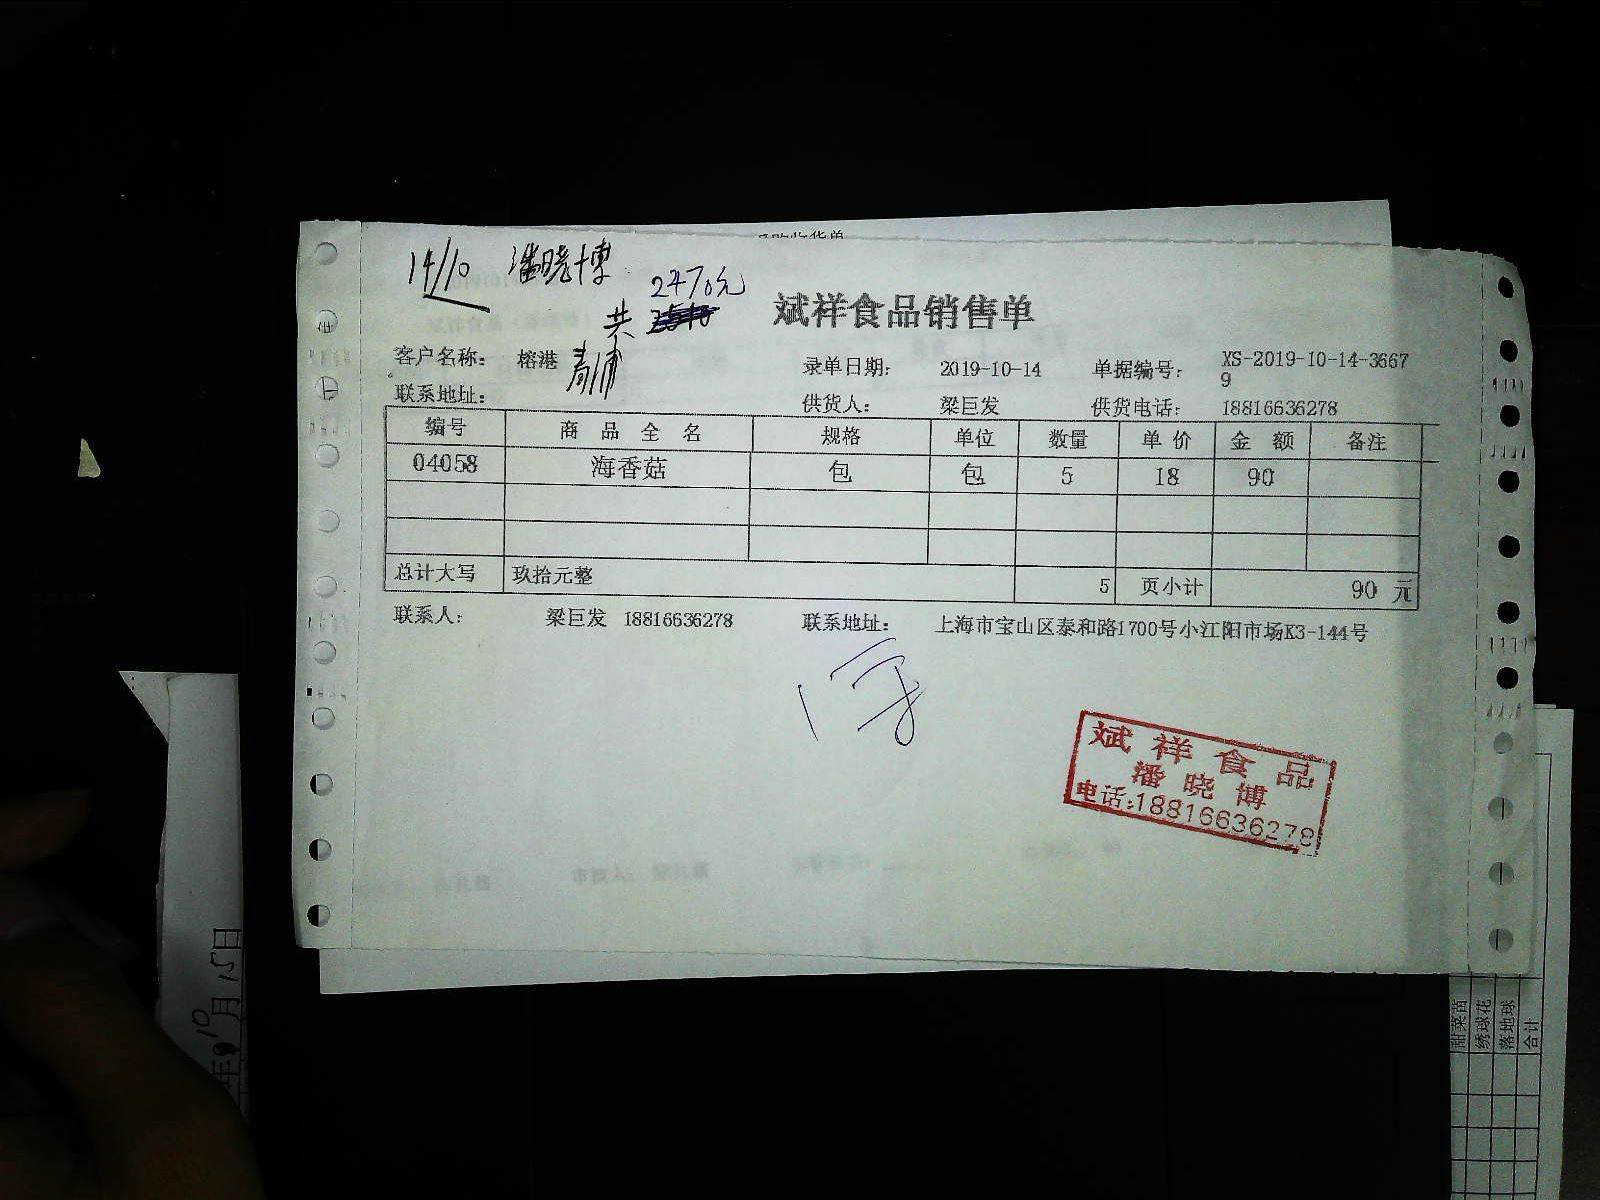 14/10 潘晓博
共 2470元
斌祥食品销售单
客户名称： 榕港 青浦 录单日期： 2019-10-14 单据编号： XS-2019-10-14-36679
联系地址： 供货人： 梁巨发 供货电话： 18816636278
编号 商品全名 规格 单位 数量 单价 金额 备注
04058 海香菇 包 包 5 18 90
总计大写 玖拾元整 5 页小计 90 元
联系人： 梁巨发 18816636278 联系地址： 上海市宝山区泰和路1700号小江阳市场K3-144号
斌祥食品
潘晓博
电话:18816636278
年10月15日
甜菜苗
绣球花
落地球
合计